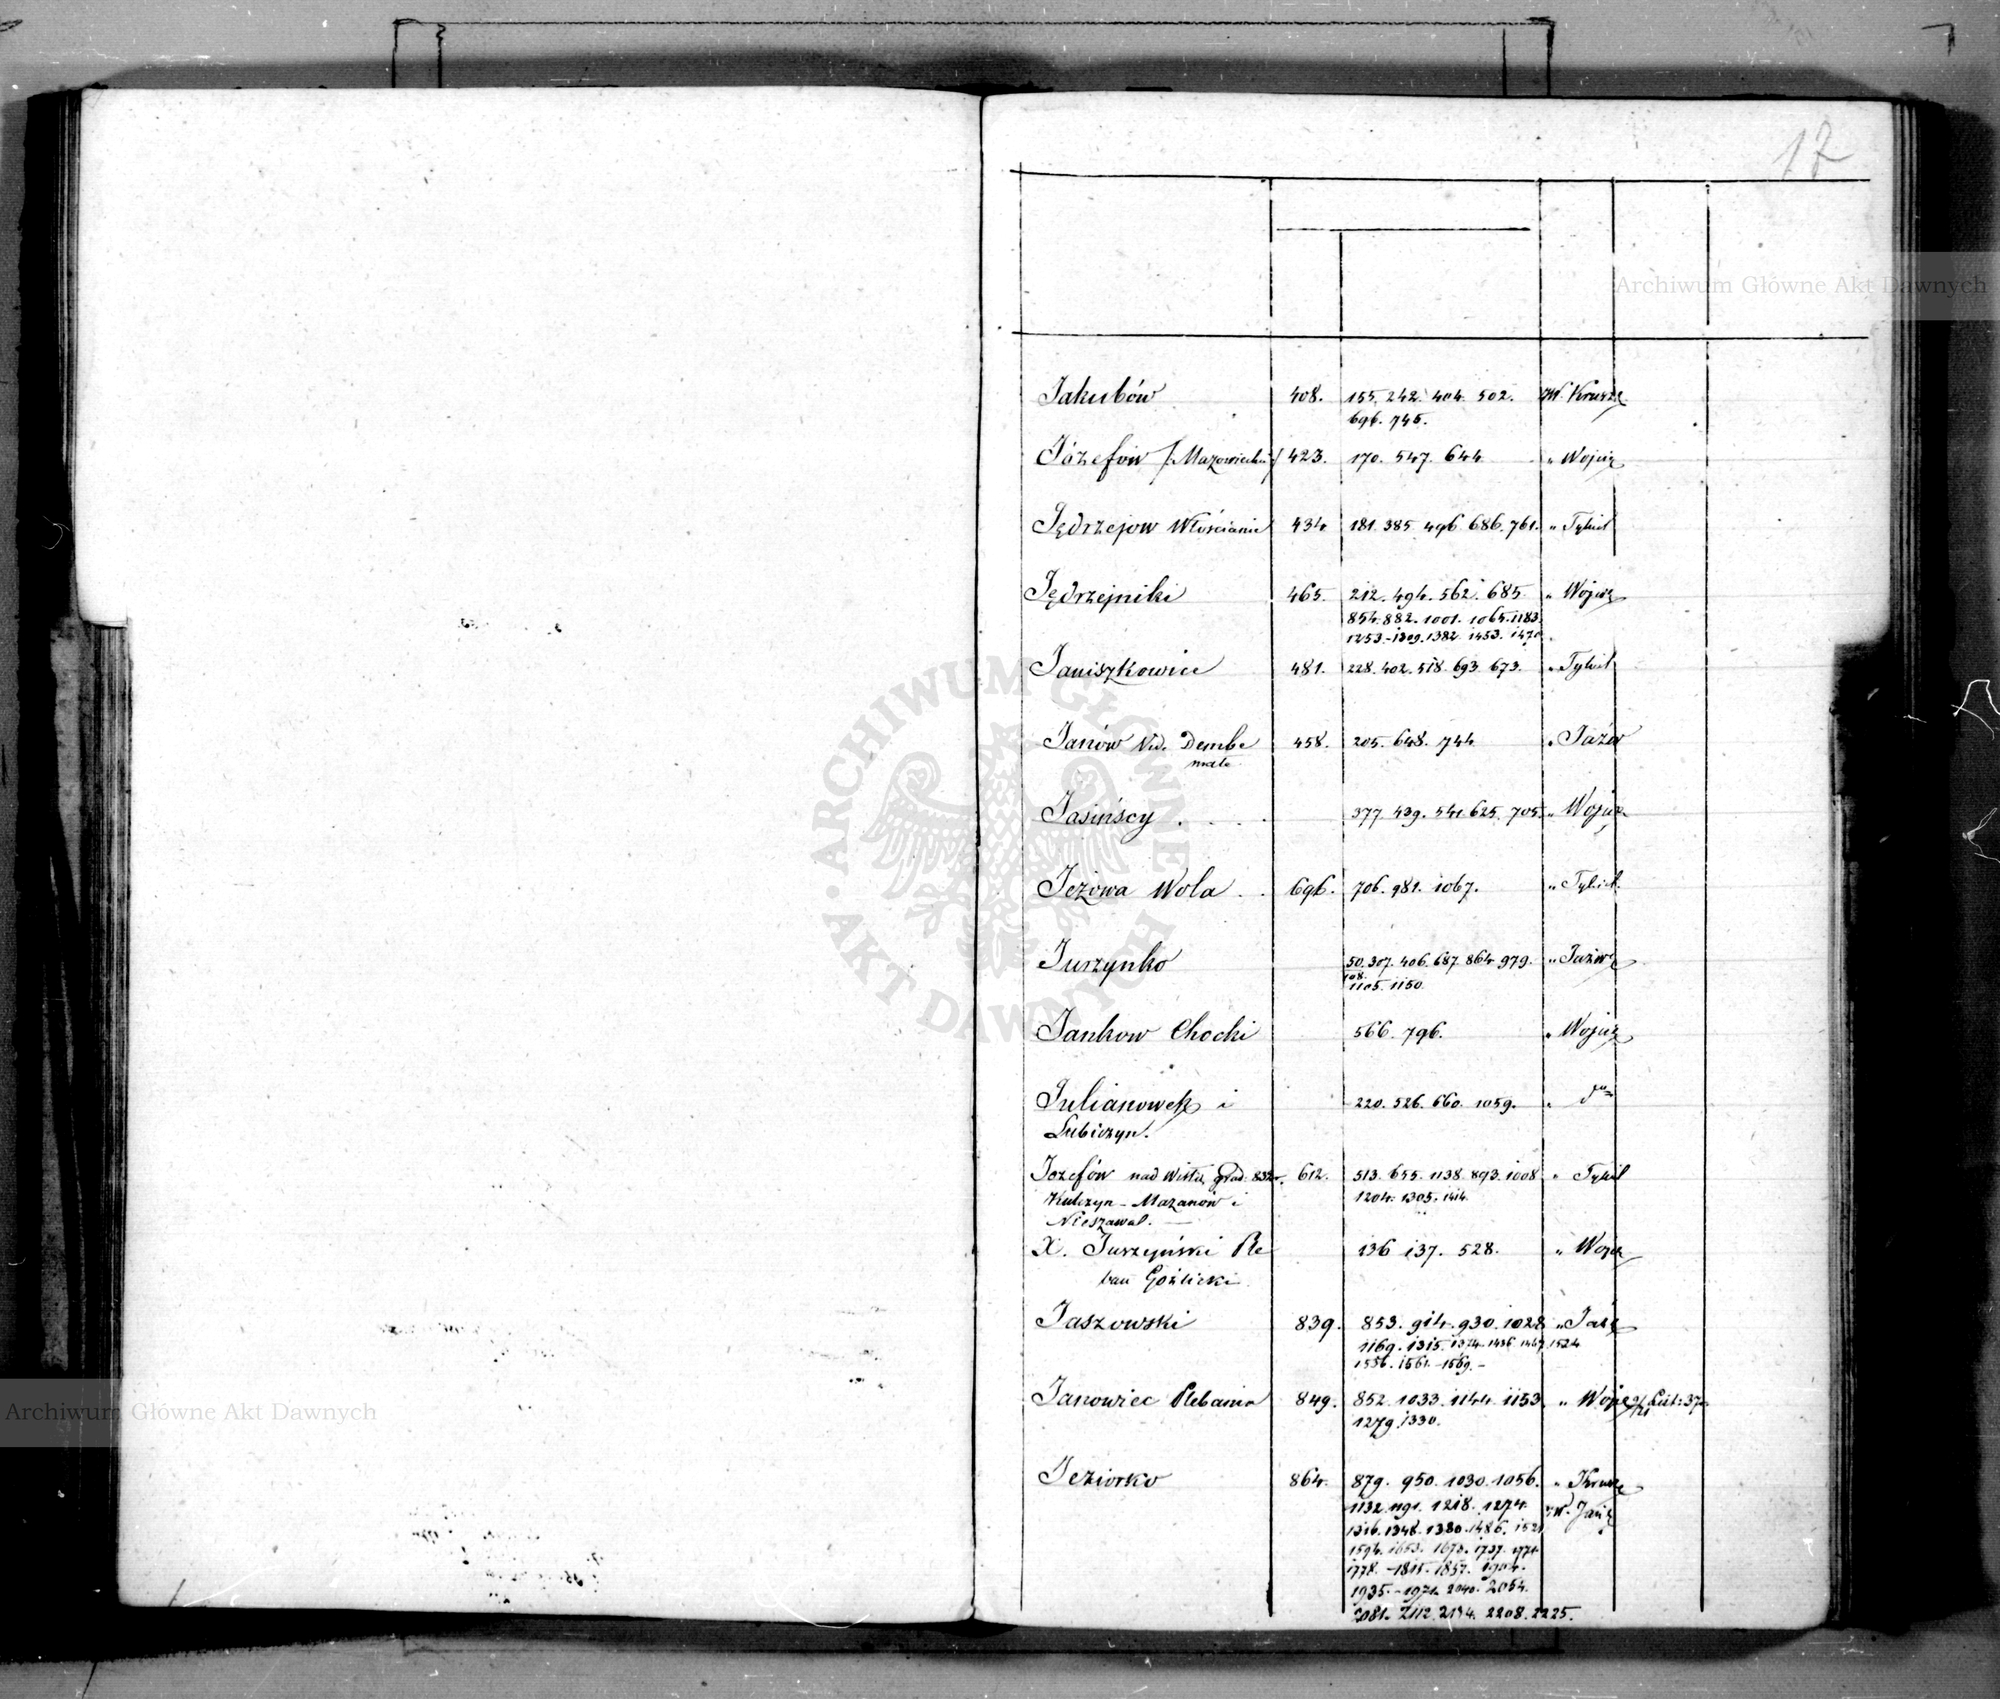 17
Archiwum Główne Akt Dawnych
Jakubów 408. 155. 242. 404. 502. W. Krusz
696. 745.
Józefów /Mazowiecki/ 423. 170. 547. 644. „ Wojcię
Jędrzejow Włościanie 434 181. 385. 496. 686. 761. „ Tykiel
Jędrzejniki 465. 212. 494. 562. 685. „ Wojcię
854. 882. 1001. 1065. 1183.
1253.-1309. 1382. 1453. 1470.
Janiszkowice 481. 228. 402. 518. 693. 673. „ Tykiel
Janów Vid. Dembe 458. 205. 648. 744. „ Jaźw
małe
Jasińscy . . . . 377. 439. 541. 625. 705. „ Wojcię
Jeżowa Wola . . 696. 706. 981. 1067. „ Tykiel
Jurzynko 50. 307. 406. 687. 864. 979. „ Jaźwę
108.
1105. 1150.
Jankow Chocki 566. 796. „ Wojcię
Julianowek i 220. 526. 660. 1059. „ dto
Lubiczyn.
Jozefów nad Wisłą Grad: 832 612. 513. 655. 1138. 893. 1008 „ Tykiel
Kulczyn - Mazanów i 1204. 1305. 1414.
Nieszawal.
X. Juszyński Ple 136 137. 528. „ Wojcię
ban Goźlicki
Jaszowski 839. 853. 914. 930. 1028. „ Jaźę
1169. 1315. 1374. 1436. 1467. 1524
1536. 1561.-1569.-
Janowiec Plebania 849. 852. 1033. 1144. 1153. „ Wojcię
1279. 1330.
Jeziorko 864. 879. 950. 1030. 1056. „ Krusz
1132. 1191. 1218. 1274. „ W. Jaźę
1316. 1348. 1380. 1486. 1521
1594. 1653. 1673. 1737. 1771.
1778.-1815. 1857. 1904.
1935.-1971. 2040. 2054.
2081. 2112. 2134. 2208. 2225.
ARCHIWUM GŁÓWNE AKT DAWNYCH
Archiwum Główne Akt Dawnych